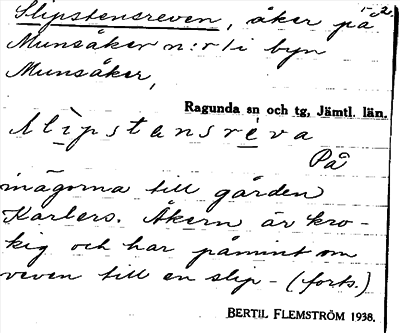 Slipstensreven, åker på 1-2.
Munsåker n:r 1 i byn
Munsåker,
Ragunda sn och tg, Jämtl. län.
slipstensreva
På
inägorna till gården
Karlers. Åkern är kro-
kig och har påmint om
veven till en slip- (forts.)
BERTIL FLEMSTRÖM 1938.